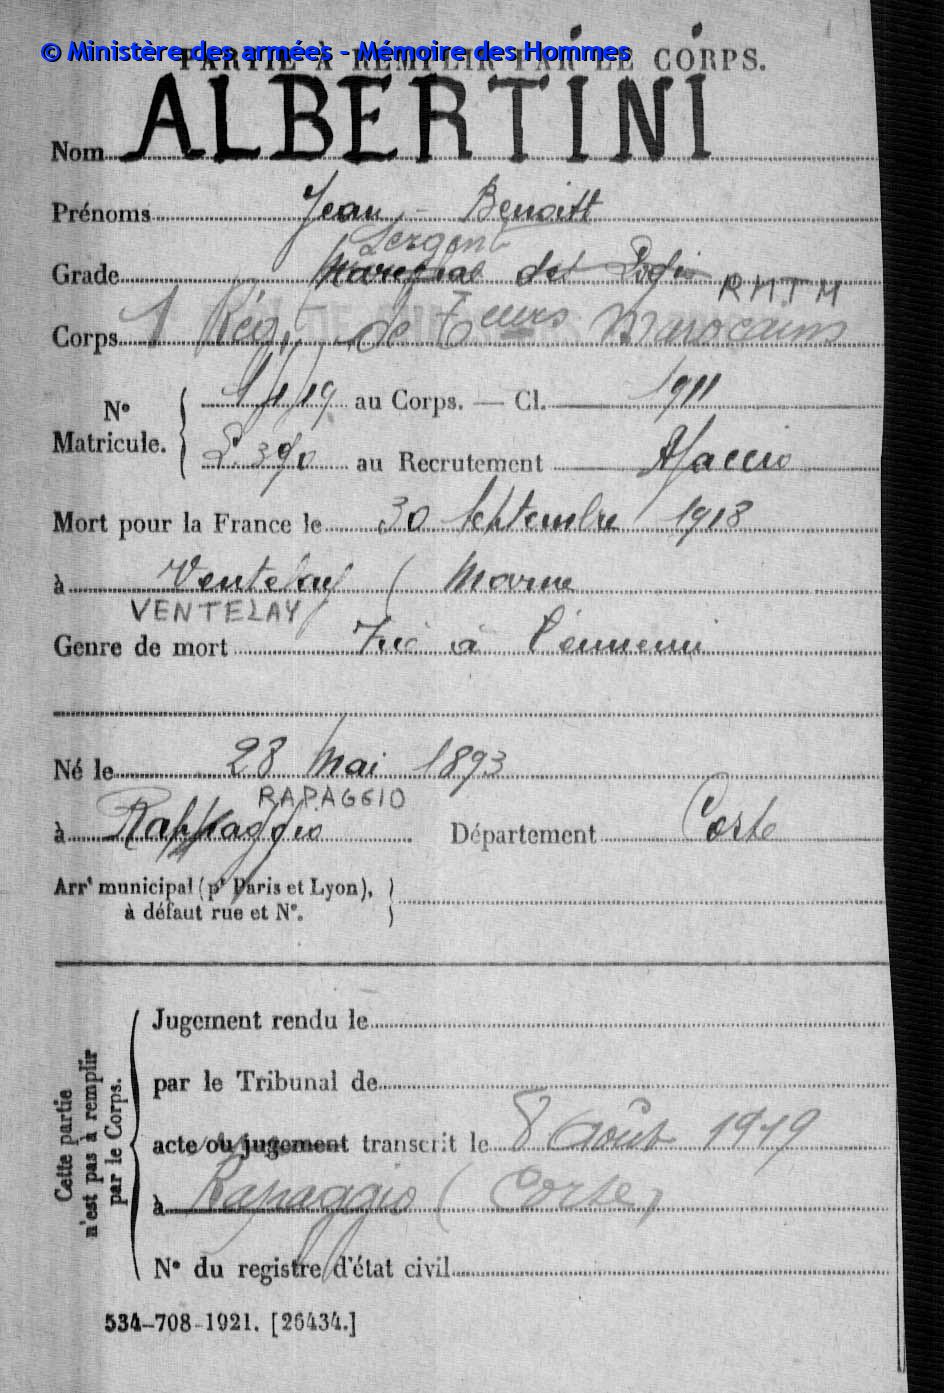 © Ministère des armées - Mémoire des Hommes
PARTIE À REMPLIR PAR LE CORPS.
Nom ALBERTINI
Prénoms Jean - Benoitt
Sergent
Grade Maréchal des Logis
RMTM
Corps 1 Rég. de Teurs Marocains
No Matricule. { au Corps. — Cl. 1911
au Recrutement Ajaccio
Mort pour la France le 30 Septembre 1918
à Ventelay ( Marne
VENTELAY
Genre de mort Tué à l'ennemi
Né le 28 Mai 1893
RAPAGGIO
à Rappaggio Département Corse
Arrt municipal (pr Paris et Lyon),
à défaut rue et No. }
Cette partie
n'est pas à remplir
par le Corps.
Jugement rendu le
par le Tribunal de
acte ou jugement transcrit le 8 Août 1919
à Rapaggio ( Corse )
No du registre d'état civil
534-708-1921. [26434.]